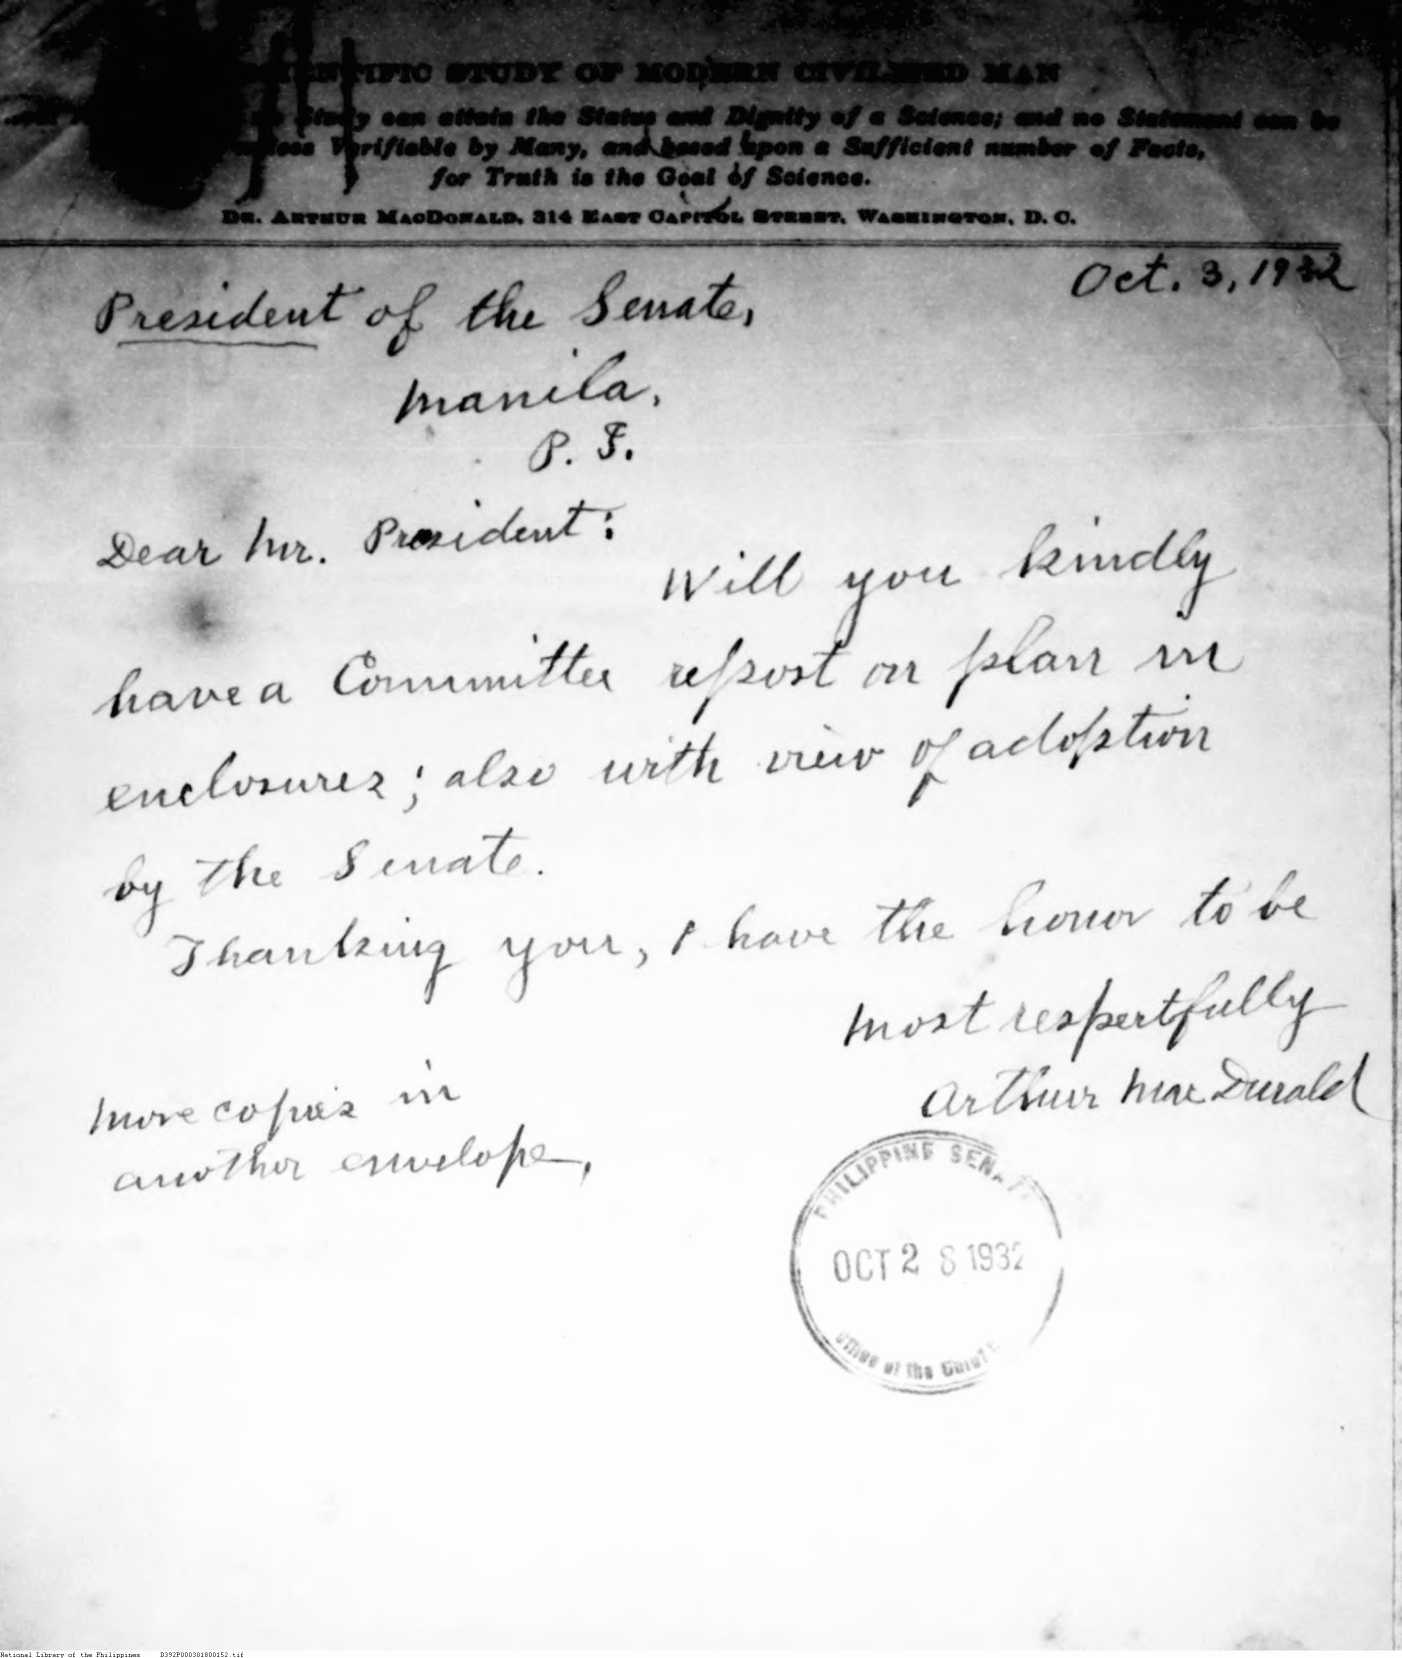 STUDY OF MODERN CIVILIZED MAN
Study can attain the Status and Dignity of a Science; and no Statement can be
Verifiable by Many, and based upon a Sufficient number of Facts,
for Truth is the Goal of Science.
DR. ARTHUR MACDONALD, 314 EAST CAPITOL STREET, WASHINGTON, D. C.
Oct. 3, 1932
President of the Senate,
Manila,
P. I.
Dear Mr. President:
Will you kindly
have a Committee report on plan in
enclosures; also with view of adoption
by the Senate.
Thanking you, I have the honor to be
most respectfully
Arthur MacDonald
More copies in
another envelope.
PHILIPPINE SENATE
OCT 28 1932
Office of the
National Library of the Philippines D392P000301800152.tif